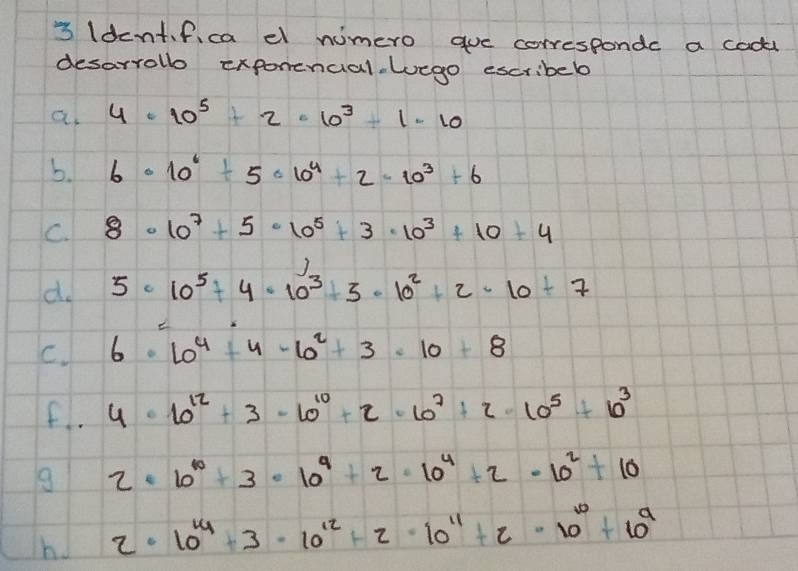 3 Identifica el número que corresponde a cada
desarrollo exponencial. Luego escribelo
a. 4 · 10⁵ + 2 · 10³ + 1 · 10
b. 6 · 10⁶ + 5 · 10⁴ + 2 · 10³ + 6
c. 8 · 10⁷ + 5 · 10⁵ + 3 · 10³ + 10 + 4
d. 5 · 10⁵ + 4 · 10³ + 3 · 10² + 2 · 10 + 7
e. 6 · 10⁴ + 4 · 10² + 3 · 10 + 8
f. 4 · 10¹² + 3 · 10¹⁰ + 2 · 10⁷ + 2 · 10⁵ + 10³
g 2 · 10¹⁰ + 3 · 10⁹ + 2 · 10⁴ + 2 · 10² + 10
h. 2 · 10¹⁴ + 3 · 10¹² + 2 · 10¹¹ + 2 · 10¹⁰ + 10⁹